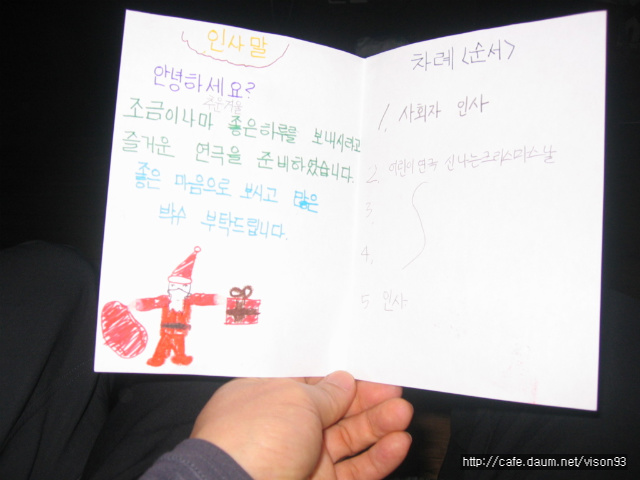 인사말
안녕하세요?
추운겨울
조금이나마 좋은하루를 보내시라고
즐거운 연극을 준비하였습니다.
좋은 마음으로 보시고 많은
박수 부탁드립니다.
차례<순서>
1. 사회자 인사
2. 어린이 연극 신나는크리스마스날
3.
4.
5 인사
http://cafe.daum.net/vison93